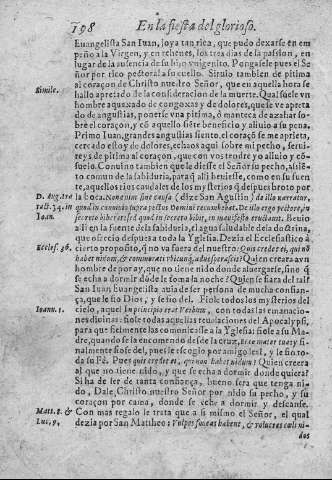 198 En la fiesta del glorioso.
Euangelista San Iuan, joya tan rica, que pudo dexarse en em
peño a la Virgen, y en rehenes, los tres dias de la passion, en
lugar de la ausencia de su hijo vnigenito. Pongasele pues el Se
ñor por rico pectoral a su cuello. Siruio tambien de pitima
al coraçon de Christo nuestro Señor, que en aquella hora se
Simile.
hallo apretado de la consideracion de la muerte. Qual suele vn
hombre aquexado de congoxas y de dolores, que se ve apreta
do de angustias, ponerse vna pitima, ò manteca de azahar so-
bre el coraçon, y cō aquello siẽte beneficio y aliuio a su pena.
Primo Iuan, grandes angustias siento, el coraçō se me aprieta,
cercado estoy de dolores, echaos aqui sobre mi pecho, serui-
reys de pitima al coraçon, que con vos tendre yo aliuio y cō-
suelo. Conuino tambien que le diesse el Señor su pecho, assiē-
to comun de la sabiduria, para q̃ alli beuiesse, como en su fuen
te, aquellos rios caudales de los mysterios q̃ despues broto por
D. Aug. tra
la boca. Non enim sine causa (dize San Agustin) de illo narratur,
ctat. 34. in
quod in conuiuio supra pectus Domini recumbebat. De illo ergo pectore, in
Ioan.
secreto bibebat: sed quod in secreto bibit, in manifesto eructauit. Beuio
a lli en la fuente de la sabiduria, el agua saludable de la doctrina,
que ofrecio despues a toda la Yglesia. Dezia el Ecclesiastico a
Ecclesi. 36.
cierto proposito, q̃ no va fuera del nuestro: Quis credet ei, qui nō
habet nidum, & deuertens vbicunq̃, obscurauerit? Quien creera a vn
hombre de por ay, que no tiene nido donde aluergarse, sino q̃
se echa a dormir dōde le toma la noche? Quien se fiara del tal?
San Iuan Euangelista auia de ser persona de mucha confian-
ça, que le fio Dios, y se fio del. Fiole todos los mysterios del
Ioann. 1.
cielo, aquel In principio erat Verbum, con todas las emanacio-
nes diuinas: fiole todas aquellas reuelaciones del Apocalypsi,
para que fielmente los comunicasse a la Yglesia: fiole a su Ma-
dre, quando se la encomendo desde la cruz, Ecce mater tua: y fi-
nalmente fiose del, pues le escogio por amigo leal, y le fio to-
da su Fè. Pues quis credet ei, qui non habet nidum? Quien creera
al que no tiene nido, y que se echa a dormir donde quiera?
Si ha de ser de tanta confiança, bueno sera que tenga ni-
do, Dale Christo nuestro Señor por nido su pecho, y su
coraçon por cama, donde se eche a dormir y descanse.
Matt. 8. &
Con mas regalo le trata que a si mismo el Señor, el qual
Luc. 9.
dezia por San Mattheo: Vulpes foueas habent, & volucres cæli ni-
dos